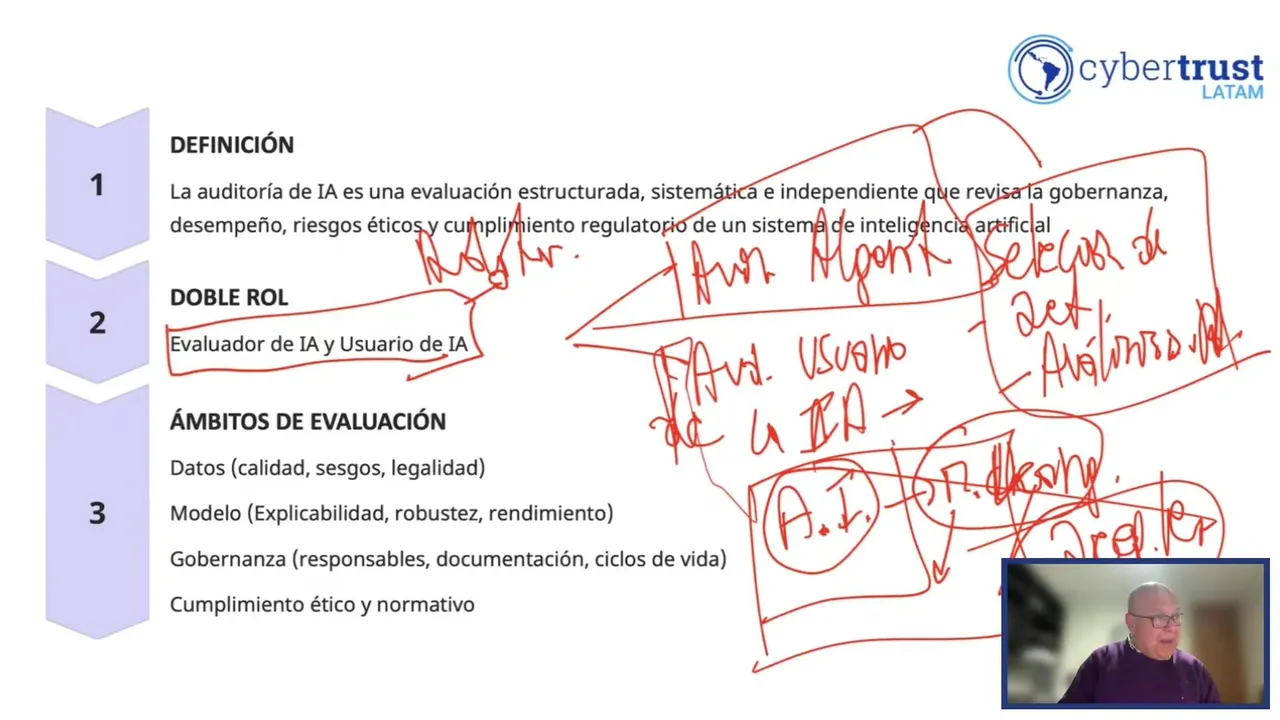 cybertrust
LATAM
1
DEFINICIÓN
La auditoría de IA es una evaluación estructurada, sistemática e independiente que revisa la gobernanza,
desempeño, riesgos éticos y cumplimiento regulatorio de un sistema de inteligencia artificial
2
DOBLE ROL
Evaluador de IA y Usuario de IA
3
ÁMBITOS DE EVALUACIÓN
Datos (calidad, sesgos, legalidad)
Modelo (Explicabilidad, robustez, rendimiento)
Gobernanza (responsables, documentación, ciclos de vida)
Cumplimiento ético y normativo
usuario
de la
A.I.